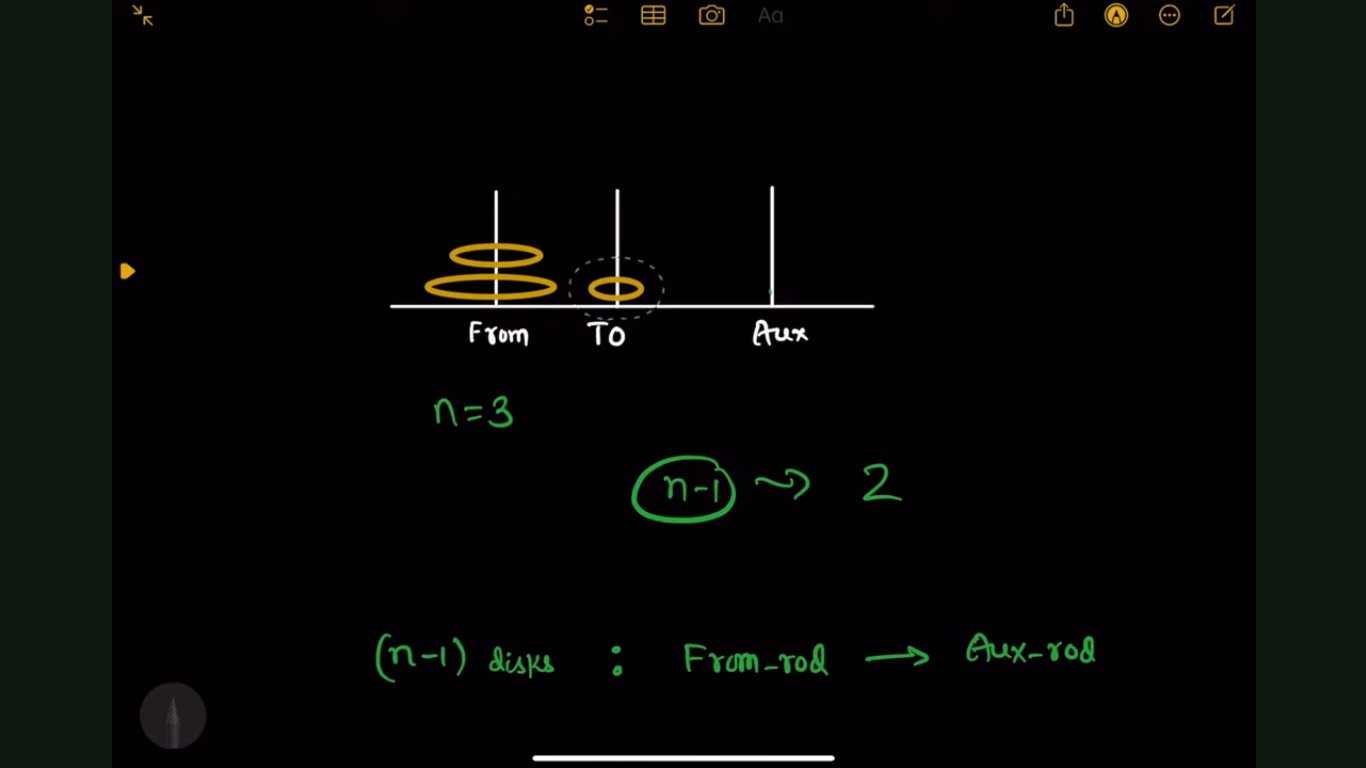 Aa
From TO Aux
n=3
n-1 ⤳ 2
(n-1) disks : From_rod → Aux_rod